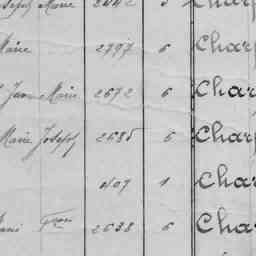 Joseph Marie 2442 5 Charp
Marie 2797 6 Charp
Jean Marie 2672 6 Char
Marie Joseph 2685 6 Char
407 1 Char
2638 6 Char